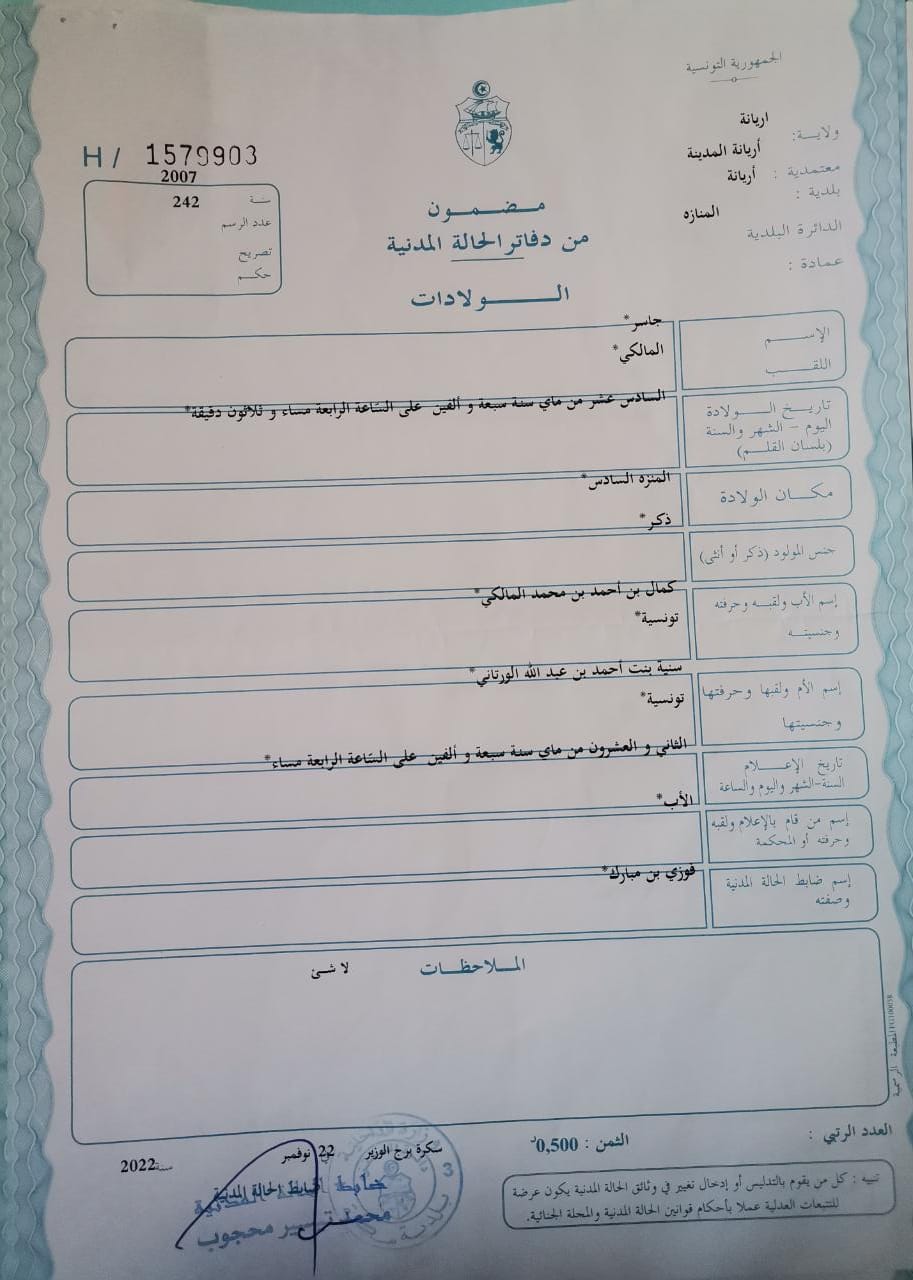 الجمهورية التونسية
ولاية: اريانة
معتمدية : أريانة المدينة
بلدية : أريانة
الدائرة البلدية المنازه
عمادة :
H / 1579903
سنة 2007
عدد الرسم 242
تصريح
حكم
مضمون
من دفاتر الحالة المدنية
الولادات
الإسم جاسر*
اللقب المالكي*
تاريخ الولادة
اليوم - الشهر والسنة
(بلسان القلم)
السادس عشر من ماي سنة سبعة و ألفين على الساعة الرابعة مساء و ثلاثون دقيقة*
مكان الولادة المنزه السادس*
جنس المولود (ذكر أو أنثى) ذكر*
إسم الأب ولقبه وحرفته
وجنسيته
كمال بن أحمد بن محمد المالكي*
تونسية*
إسم الأم ولقبها وحرفتها
وجنسيتها
سنية بنت أحمد بن عبد الله الورتاني*
تونسية*
تاريخ الإعلام
السنة-الشهر واليوم والساعة
الثاني و العشرون من ماي سنة سبعة و ألفين على الساعة الرابعة مساء*
إسم من قام بالإعلام ولقبه
وحرفته أو المحكمة
الأب*
إسم ضابط الحالة المدنية
وصفته
فوزي بن مبارك*
الملاحظات
لا شئ
المطبعة الرسمية
العدد الرتبي :
الثمن : 0,500د
سكرة برج الوزير 22 نوفمبر سنة 2022
ضابط الحالة المدنية
تنبيه : كل من يقوم بالتدليس أو إدخال تغيير في وثائق الحالة المدنية يكون عرضة
للتتبعات العدلية عملا بأحكام قوانين الحالة المدنية والمجلة الجنائية.